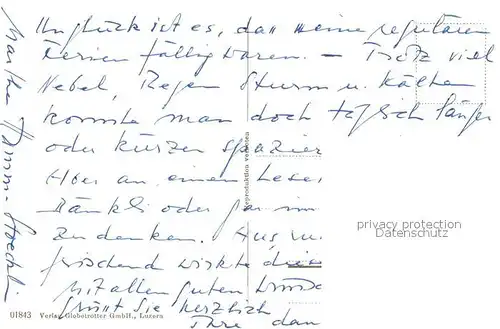 Unglück ist es, dass meine regulären
Ferien fällig waren. – Trotz viel
Nebel, Regen Sturm u. Kälten
konnte man doch täglich länger
oder kürzer spazier
Aber an einem Lese
Bänkli oder gar im
zu denken.
frischend wirkte dies
Mit allen guten Wünsc
grüsst Sie herzlich
Ihre dan
Martha
Reproduktion verboten
privacy protection
Datenschutz
01843 Verlag Globetrotter GmbH., Luzern